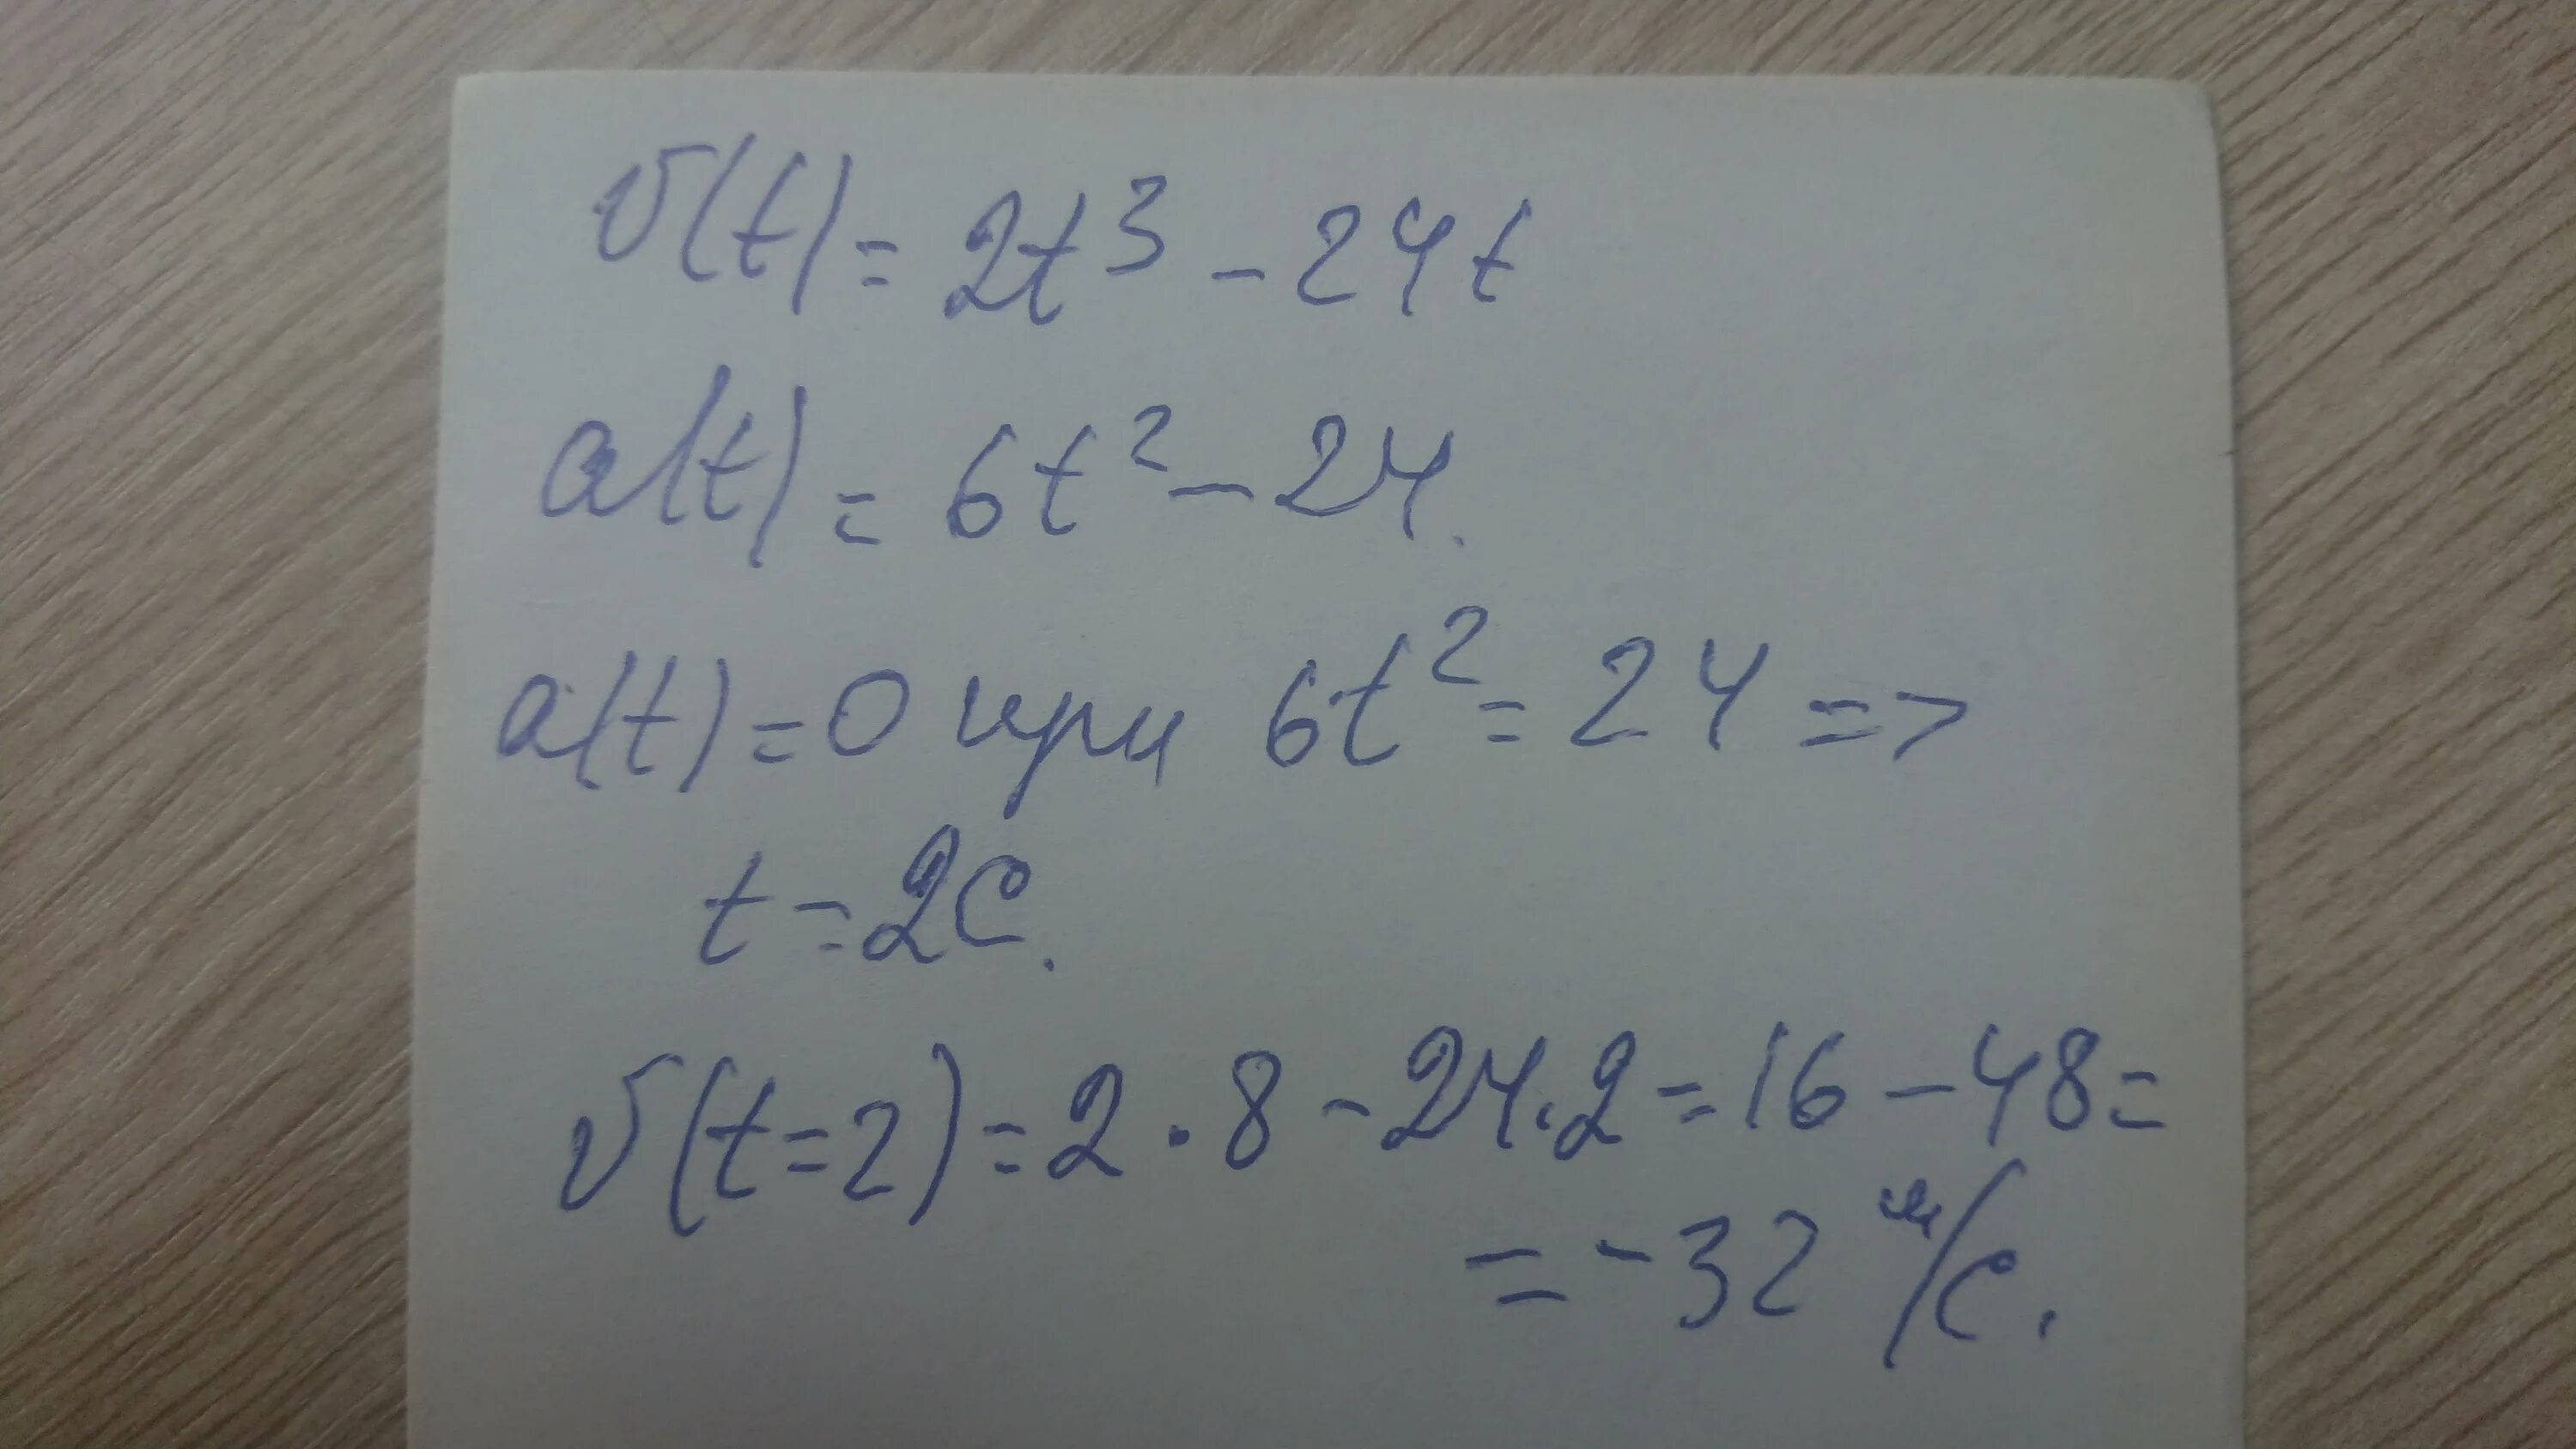 v(t) = 2t³ - 24t
a(t) = 6t² - 24.
a(t) = 0 при 6t² = 24 =>
t = 2с.
v(t=2) = 2 · 8 - 24 · 2 = 16 - 48 =
= -32 м/с.